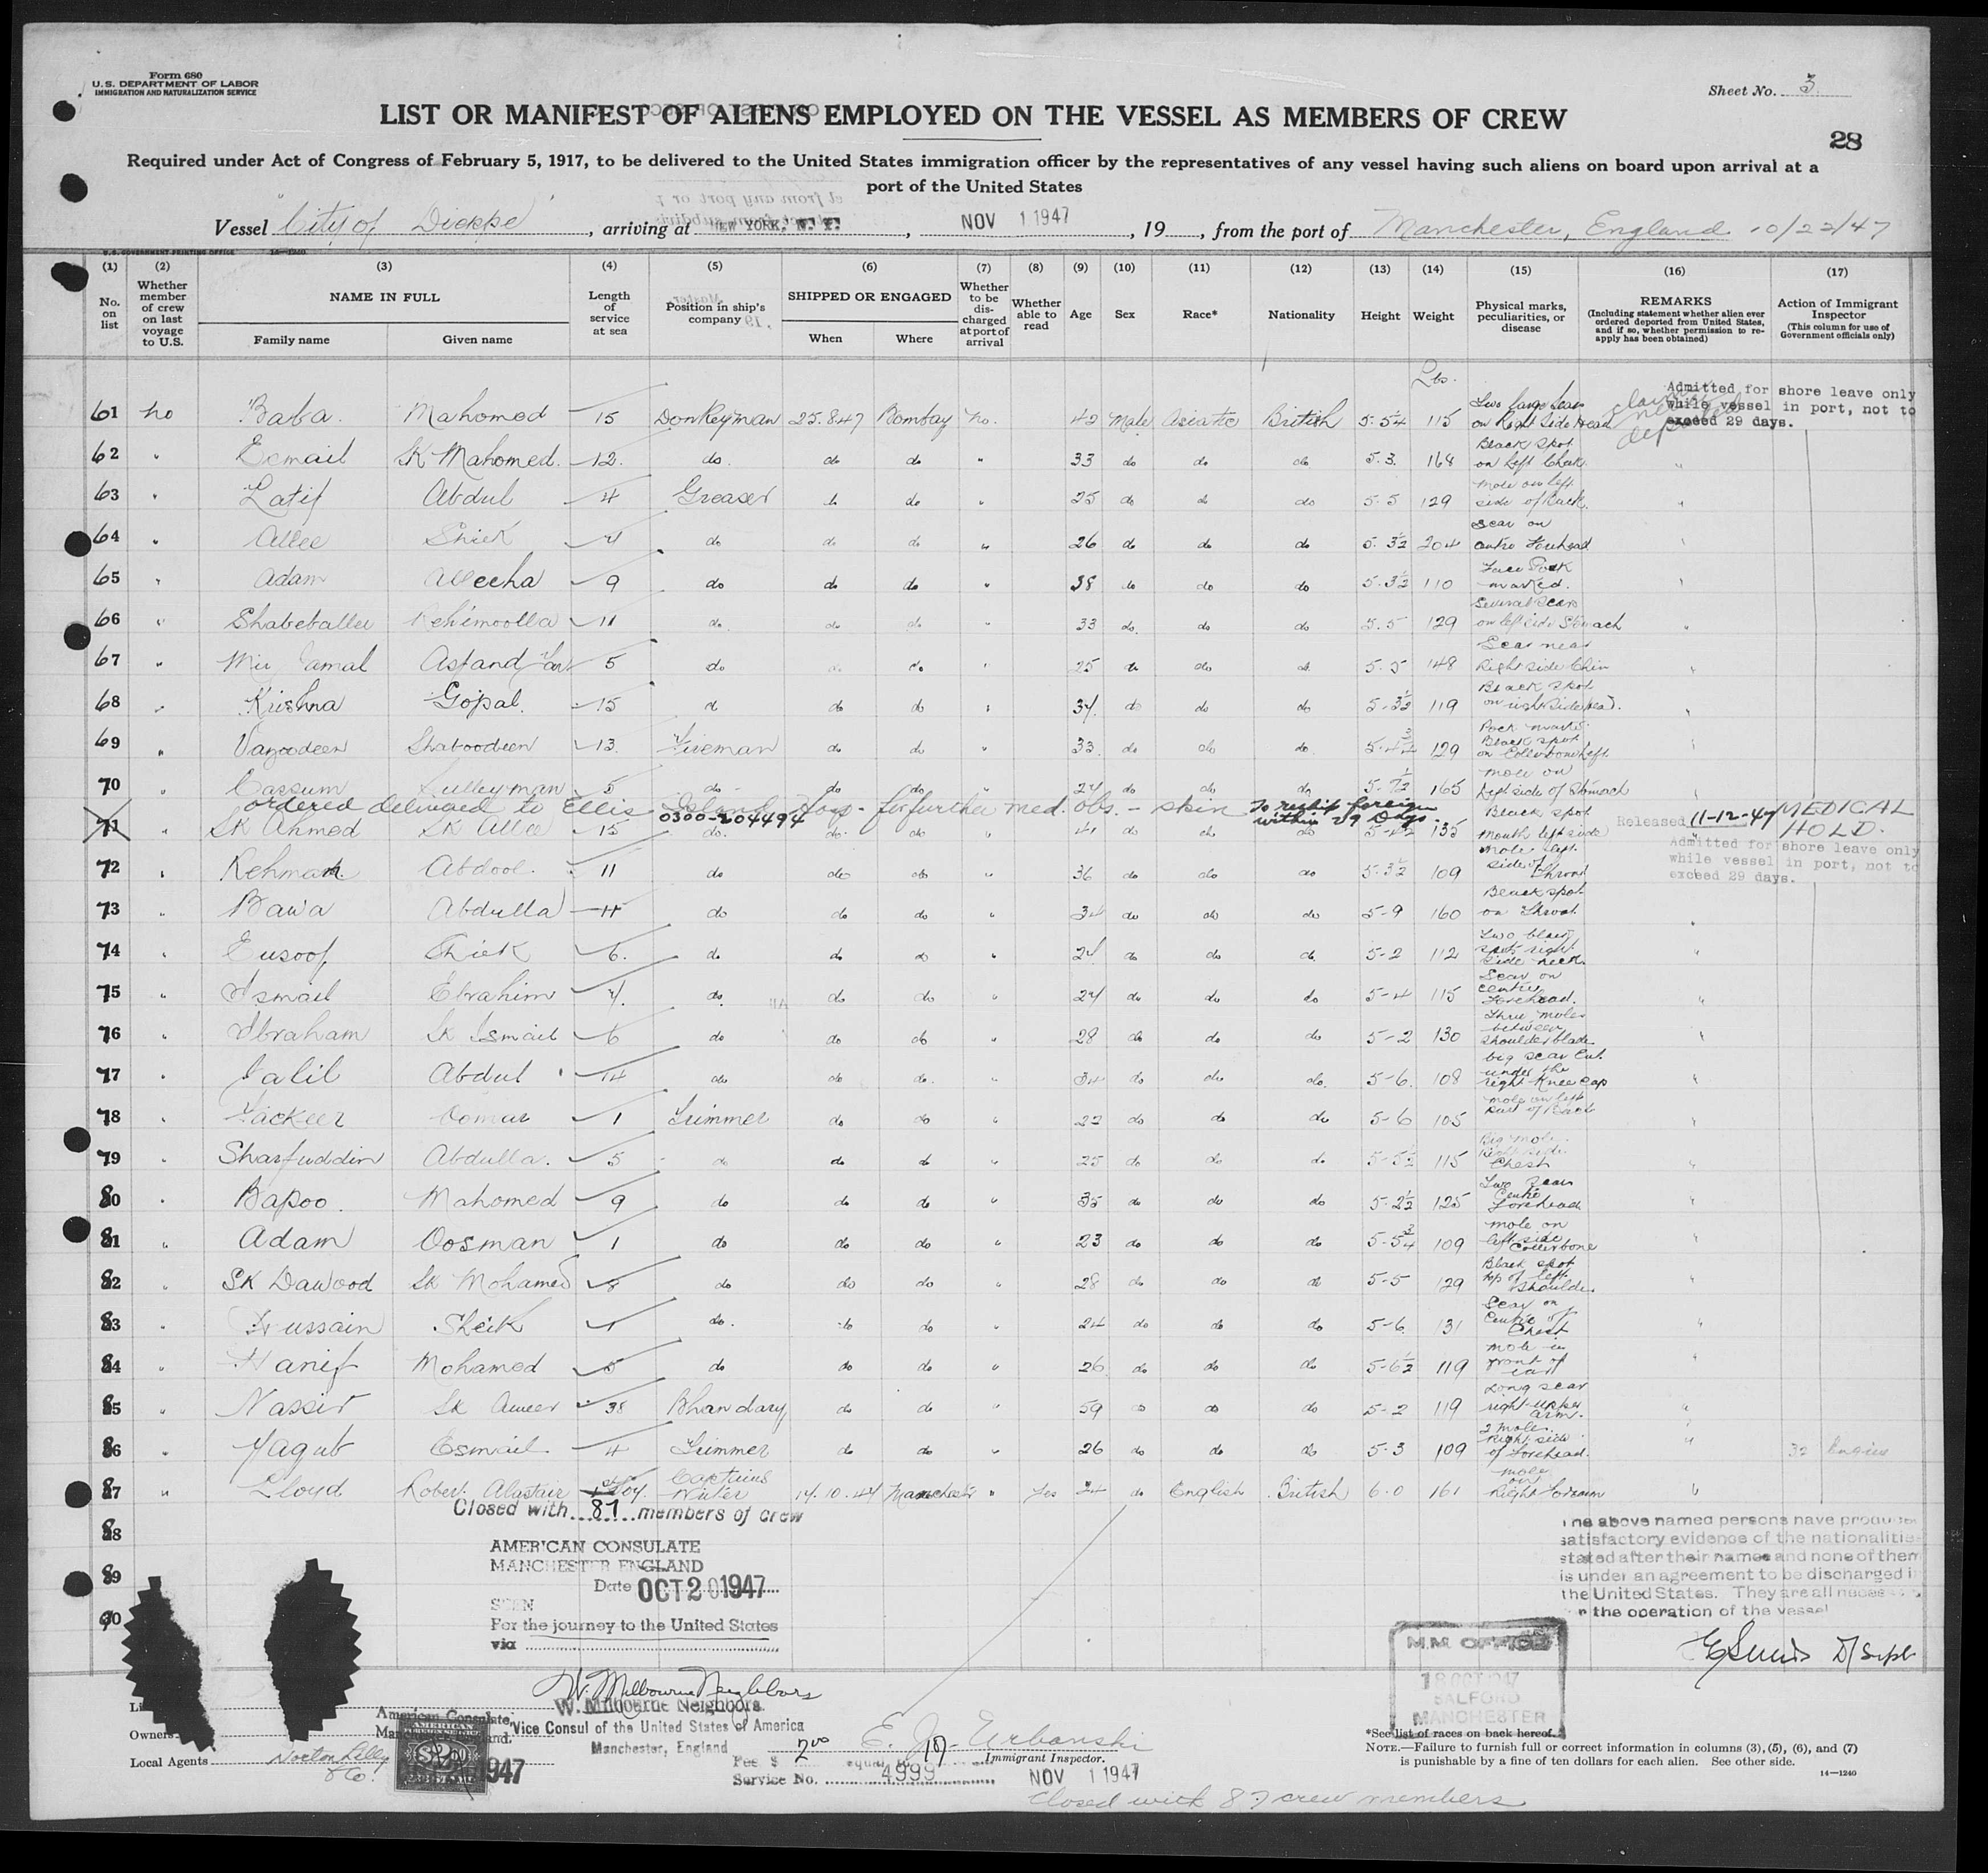 Form 680
U.S. DEPARTMENT OF LABOR
IMMIGRATION AND NATURALIZATION SERVICE
Sheet No. 3
LIST OR MANIFEST OF ALIENS EMPLOYED ON THE VESSEL AS MEMBERS OF CREW
28
Required under Act of Congress of February 5, 1917, to be delivered to the United States immigration officer by the representatives of any vessel having such aliens on board upon arrival at a
port of the United States
Vessel "City of Dieppe", arriving at NEW YORK, N. Y., NOV 1 1947, 19, from the port of Manchester, England 10/22/47
U.S. GOVERNMENT PRINTING OFFICE 14-1240
(1) (2) (3) (4) (5) (6) (7) (8) (9) (10) (11) (12) (13) (14) (15) (16) (17)
No. on list
Whether member of crew on last voyage to U.S.
NAME IN FULL
Family name Given name
Length of service at sea
Position in ship's company
SHIPPED OR ENGAGED
When Where
Whether to be discharged at port of arrival
Whether able to read
Age Sex Race* Nationality Height Weight
Physical marks, peculiarities, or disease
REMARKS
(Including statement whether alien ever ordered deported from United States, and if so, whether permission to reapply has been obtained)
Action of Immigrant Inspector
(This column for use of Government officials only)
Lbs.
Admitted for shore leave only
while vessel in port, not to
exceed 29 days.
61 no Baba. Mahomed 15 Donkeyman 25.8.47 Bombay no. 42 Male Asiatic British 5.5¼ 115 Two large scars on Right Side Head
62 " Esmail SK Mahomed. 12. do. do do " 33 do do do 5.3. 168 Black spot on left Cheek "
63 " Latif Abdul 4 Greaser do do " 25 do do do 5.5 129 Mole on left side of Back. "
64 " Allee Shiek 4 do do do " 26 do do do 5.3½ 204 Scar on centre Forehead "
65 " Adam Alleeha 9 do do do " 38 do do do 5.3½ 110 Face Pock marked. "
66 " Shabeballee Rehimoolla 11 do do do " 33 do do do 5.5 129 Several Scars on left side Stomach "
67 " Mir Jamal 5 do do do " 25 do do do 5.5 148 Scar near Right side Chin "
68 " Krishna Gopal. 15 do do do " 34 do do do 5-3½ 119 Black spot on right side head. "
69 " Vazoodeen Shaboodeen 13. Fireman do do 33 do do do 129 Pock marks. Black spot on Collarbone Left "
70 " Cassum Sulleyman 5 do do do 24 do do do 5-7½ 165 mole on Left side of Stomach
ordered delivered to Ellis Island Hosp - for further med. obs. - skin To reship foreign within 29 Days.
0300-204494
71 " SK Ahmed SK Allee 15 do. do. do " 41 do do do 5-4½ 135 Black spot mouth left side Released 11-12-47 MEDICAL HOLD.
Admitted for shore leave only
while vessel in port, not to
exceed 29 days.
72 " Rehman. Abdool. 11 do do do " 36 do do do 5-3½ 109 Mole left side of Throat
73 " Bawa Abdulla 11 do do do " 34 do do do 5-9 160 Black spot on Throat "
74 " Eusoof Shiek 6. do do do " 24 do do do 5-2 112 Two black spots right side neck "
75 " Ismail Ebrahim 4. do. do do " 24 do do do 5-4 115 Scar on centre Forehead. "
76 " Ibraham SK Ismail 6 do do do " 28 do do do 5-2 130 Three moles between shoulder blade "
77 " Jalil Abdul 14 do do do. " 34 do do do. 5-6. 108 big scar cut under the right Knee cap "
78 " Fackeer Oomar 1 Trimmer do do " 22 do do do 5-6 105 mole on left part of Back "
79 " Sharfuddin Abdulla. 5 do do do " 25 do do do 5-5½ 115 Big mole Right side Chest "
80 " Bapoo. Mahomed 9 do do do " 35 do do do 5-2½ 125 Two Scars Centre Forehead "
81 " Adam Oosman 1 do do do " 23 do do do 5-5¾ 109 mole on left side of Collerbone "
82 " SK Dawood SK Mohamed 8 do do do " 28 do do do 5-5 129 Black spot top of left Shoulder "
83 " Hussain Sheik 1 do. do do " 24 do do do 5-6 131 Scar on Centre of Chest "
84 " Hanif Mohamed 5 do do do " 26 do do do 5-6½ 119 mole in front of ear "
85 " Nassir SK Ameer 38 Bhandary do do " 59 do do do 5-2 119 Long scar right upper arm. "
86 " Yagub Esmail. 4 Trimmer do do " 26 do do do 5.3 109 2 Mole. right side of forehead. "
87 " Lloyd. Robert Alastair 1st Voy. Captains Writer 14.10.47 Manchester " Yes 24 do English British 6.0 161 mole on Right Forearm "
Closed with 87 members of crew
88
89
90
AMERICAN CONSULATE
MANCHESTER ENGLAND
Date OCT 20 1947
SEEN
For the journey to the United States
via
The above named persons have produced
satisfactory evidence of the nationalities
stated after their names and none of them
is under an agreement to be discharged in
the United States. They are all necessary
for the operation of the vessel
M.M. OFFICE
18 OCT 1947
SALFORD
MANCHESTER
W. Milbourne Neighbors
W. Milbourne Neighbors
Vice Consul of the United States of America
Manchester, England
American Consulate,
AMERICAN
$2.00
1947
Owners
Local Agents Norton Lilly & Co.
Fee $ 2.00
Service No. 4999
E. J. Urbanski
Immigrant Inspector.
NOV 1 1947
Closed with 87 crew members
*See list of races on back hereof.
NOTE.—Failure to furnish full or correct information in columns (3), (5), (6), and (7)
is punishable by a fine of ten dollars for each alien. See other side.
14—1240